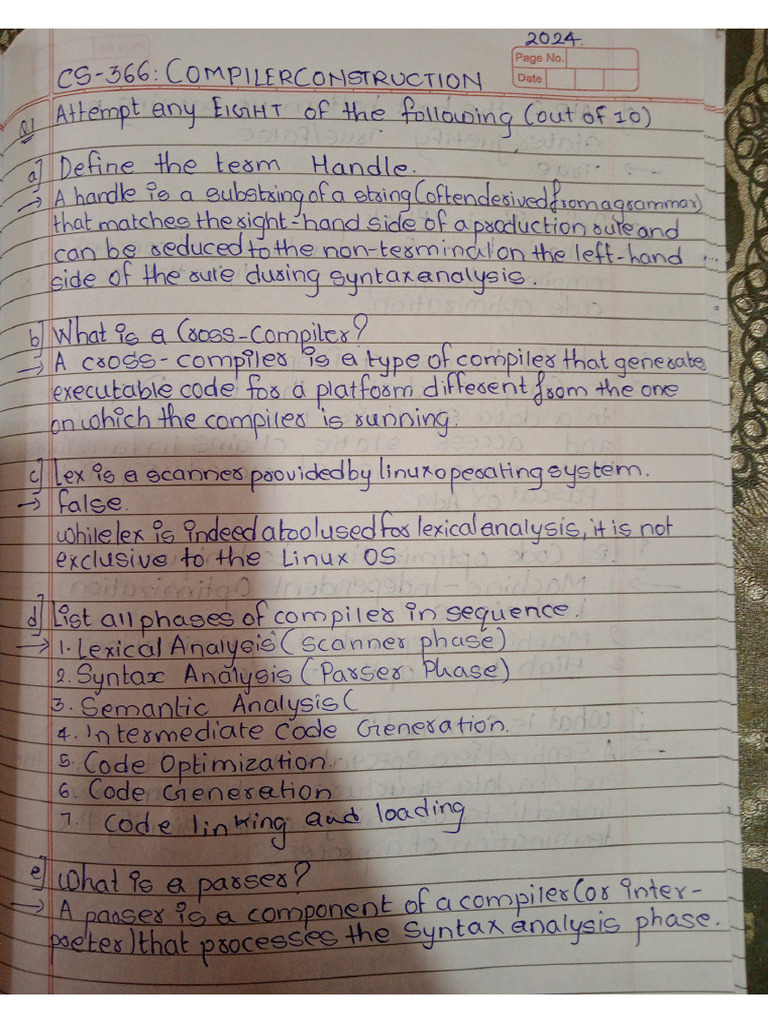 2024.
Page No.
Date
CS-366: COMPILERCONSTRUCTION
Q1 Attempt any EIGHT of the following (out of 10)
a] Define the term Handle.
→ A handle is a substring of a string (often derived from a grammar)
that matches the right-hand side of a production rule and
can be reduced to the non-terminal on the left-hand
side of the rule during syntax analysis.
b] What is a Cross-Compiler?
→ A cross-compiler is a type of compiler that generate
executable code for a platform different from the one
on which the compiler is running.
c] Lex is a scanner provided by linux operating system.
→ False.
while lex is indeed a tool used for lexical analysis, it is not
exclusive to the Linux OS
d] List all phases of compiler in sequence.
→ 1. Lexical Analysis (Scanner phase)
2. Syntax Analysis (Parser Phase)
3. Semantic Analysis (
4. Intermediate Code Generation.
5. Code Optimization.
6. Code Generation
7. Code linking and loading
e] What is a parser?
→ A parser is a component of a compiler (or inter-
preter) that processes the syntax analysis phase.